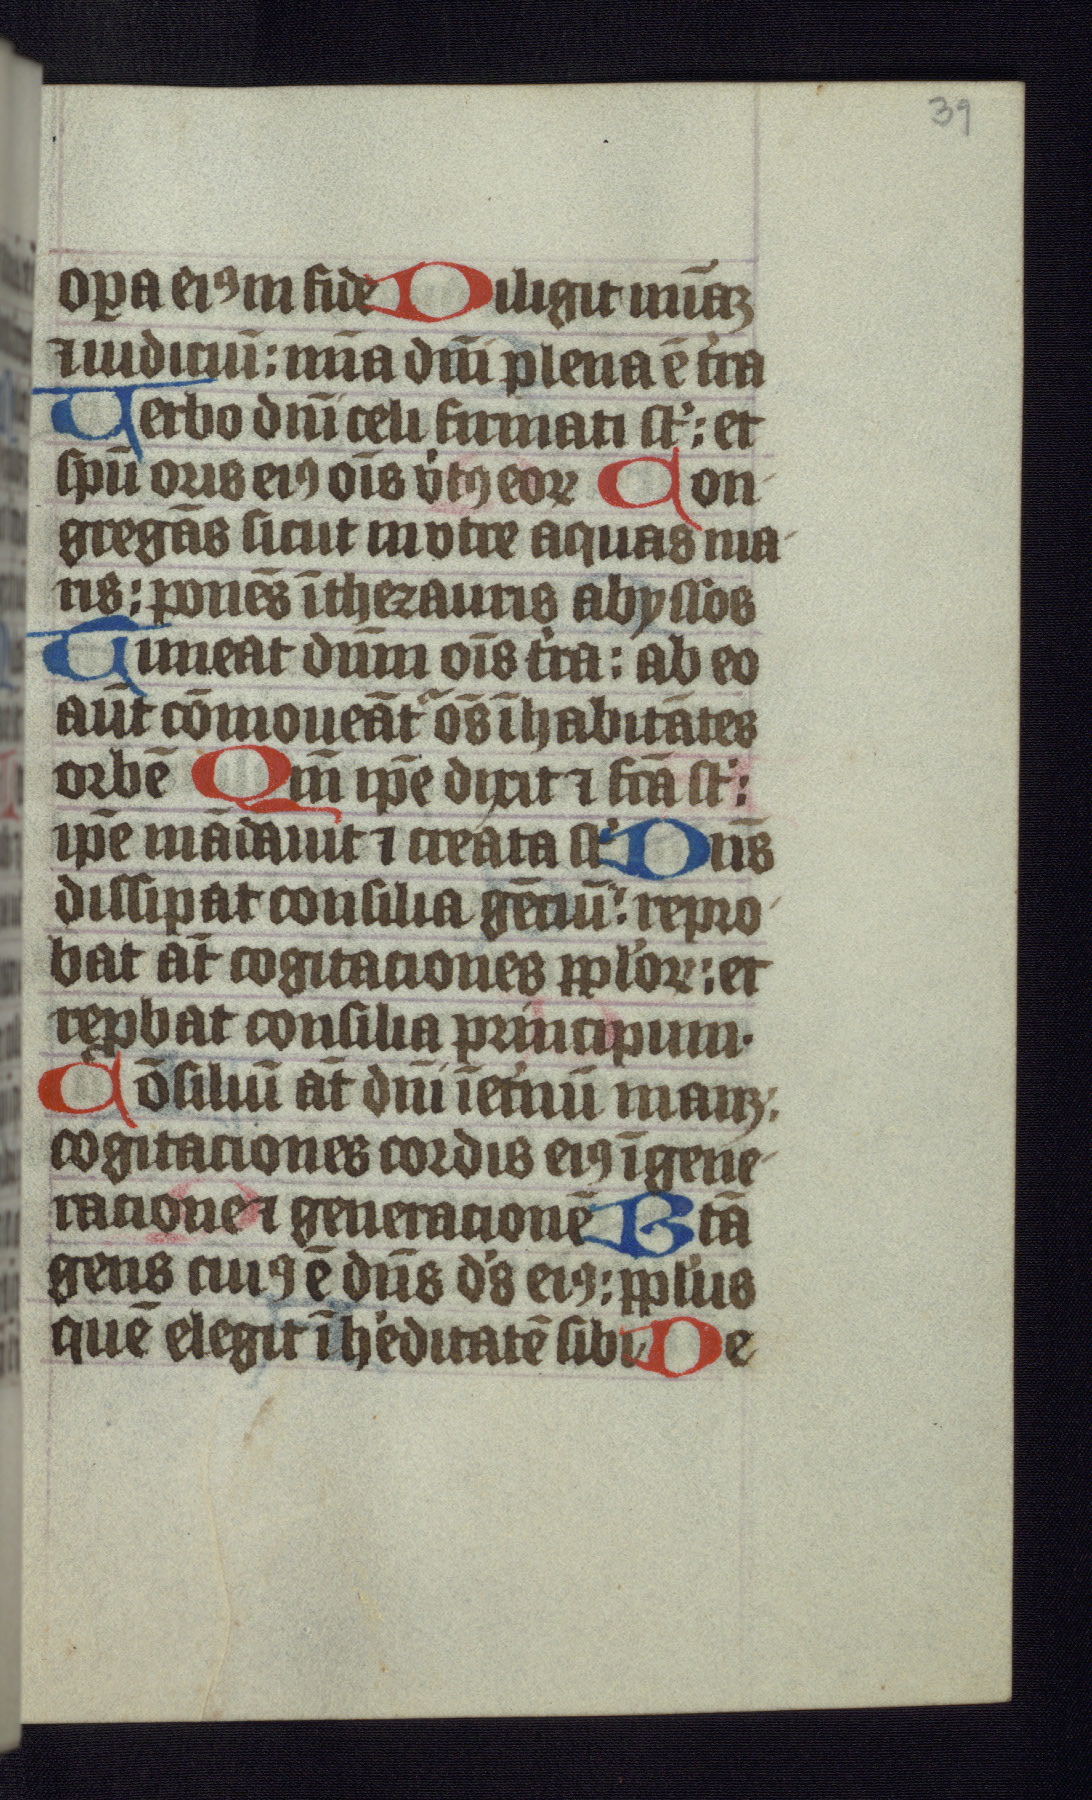 39
oꝑa eiꝰ in fide Diligit mīaꝫ
⁊ iudiciū: mīa dn̄i plena ē tͥra
Verbo dn̄i celi firmati st̓: et
spū oris eiꝰ oīs v̓tꝰ eoꝝ Con-
gregās sicut in vtre aquas ma-
ris: ponēs ī thezauris abyssos
Timeat dūm oīs tr̓a: ab eo
aūt cōmoueāt᷑ ōs īhabitātes
orbē Qm̄ ip̄e dixit ⁊ fcā st̓:
ip̄e mādauit ⁊ creata st̓ Dn̄s
dissipat consilia gēciū: repro-
bat at̄ cogitaciones pp̄l̓oꝝ: et
rep̱bat consilia principum.
Cōsiliū at̄ dn̄i ī et̓nū manꝫ:
cogitaciones cordis eiꝰ ī gene-
racione ⁊ generacionē Btā
gens cuiꝰ ē dn̄s d̓s eiꝰ: pp̄l̓us
quē elegit ī h̓editatē sibi De